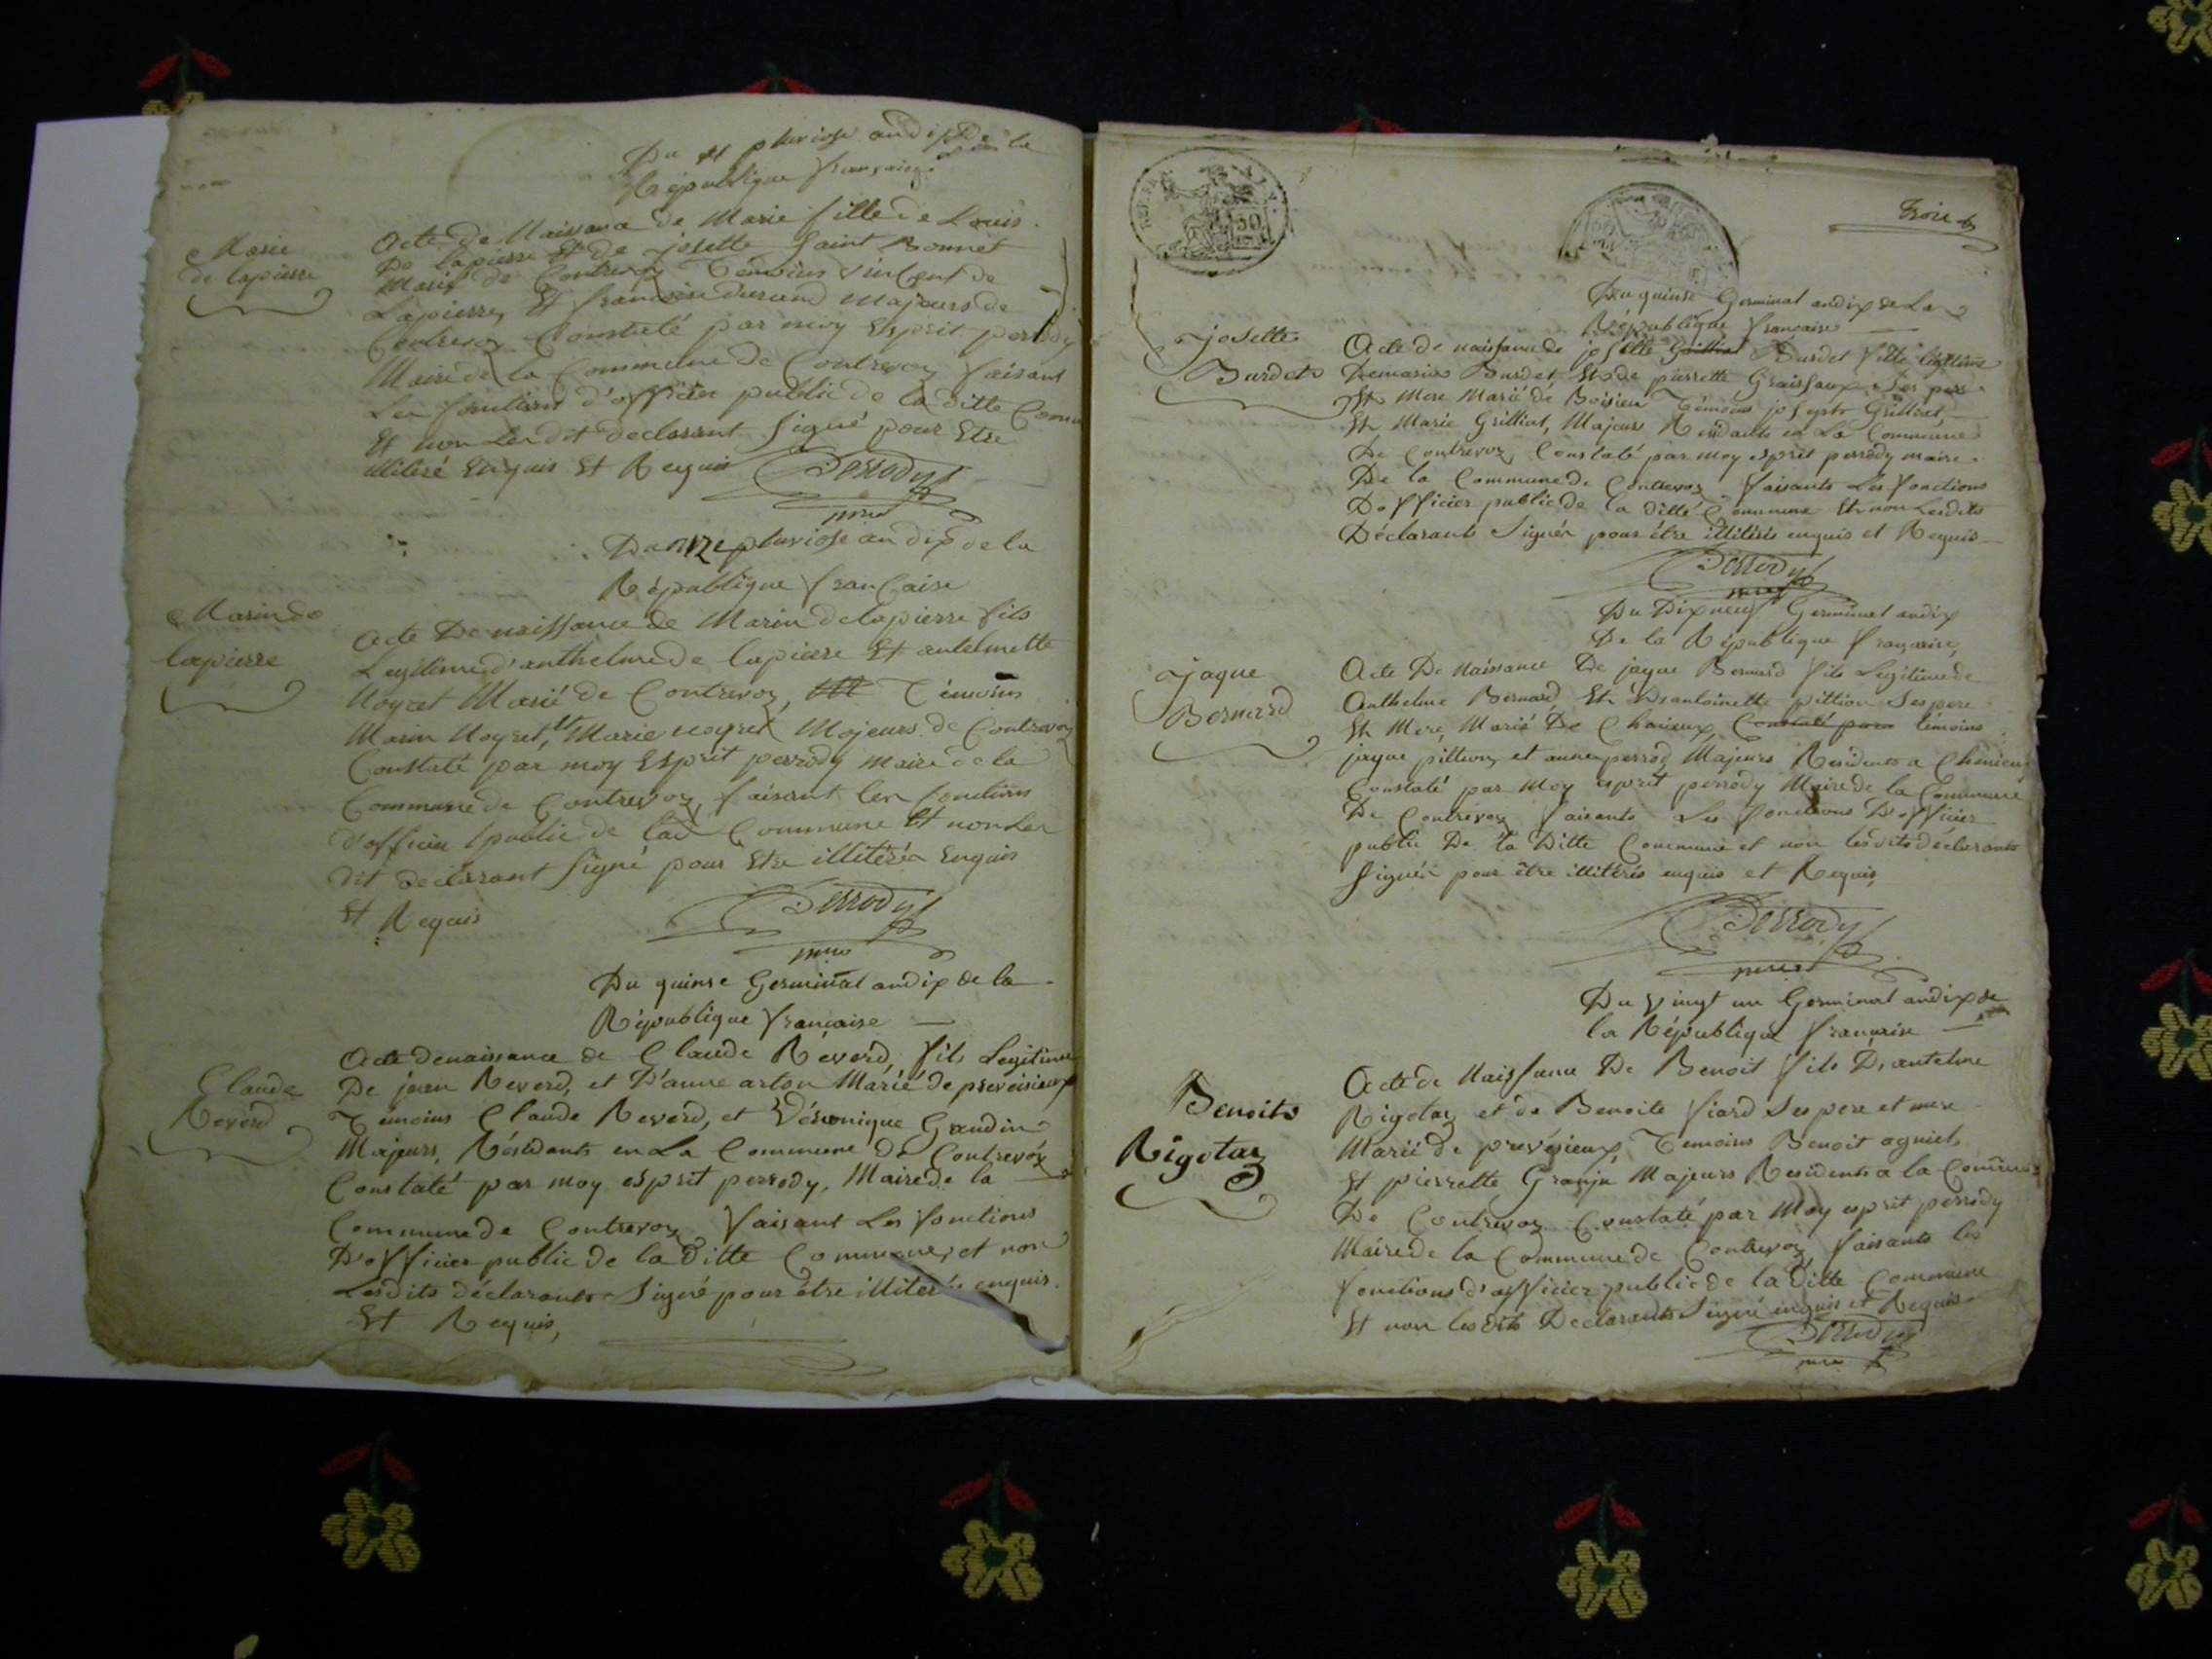 Du pluviose an dix de la
République françaisse
Marie
de lapierre
Acte de Naissance de Marie fille de Louis
De lapierre Et de josette Saint Bonnet
Marié de Contrevoz Témoins vincent de
Lapierre, Et francoise durand Majeurs de
Contrevoz Constaté par moy Esprit perrody
Maire de la Commune de Contrevoz faisant
Les fonctions d'officier public de la ditte Comu
Et non Les dit declarant Signé pour Etre
illiteré Enquis Et Requis Perrody
mre
Du onze pluviose an dix de la
République franCaise
Marin de
lapierre
Acte De naissance de Marin delapierre fils
Legitime d'anthelme de lapierre Et antelmette
Noyret Marié de Contrevoz, Témoins
Marin Noyret, et Marie noyret Majeurs de Contrevoz
Constaté par moy Esprit perrody maire de la
Commune de Contrevoz, faisant les fonctions
d'officier public de lad Commune Et non Les
dit declarant Signé pour Etre illiterés Enquis
Et Requis Perrody
mre
Du quinse Germinal an dix de la
République francaise
Claude
Reverd
Acte de naissance de Claude Reverd, fils Legitime
De jean Reverd, et D'anne arton Marié de preveisieux
Témoins Claude Reverd, et Véronique Grandin
Majeurs, Résidants en La Commune De Contrevoz
Constaté par moy esprit perrody, Maire de la
Commune de Contrevoz faisant Les fonctions
D'officier public de la Ditte Commune, et non
Lesdits déclarants Signé pour être illiterés enquis
Et Requis,
REP. FRA
50
Trois
Du quinse Germinal an dix de La
République francaise
josette
Burdet
Acte de naissance de josette Grilliat Burdet fille légitime
De marin Burdet Et de pierrette Graissaux Ses pere
Et Mere Marié de Boisieu Témoins joseph Grilliet
Et Marie Grilliat, Majeurs Residants en La Commune
De Contrevoz, Constaté par moy esprit perrody maire
De la Commune de Contrevoz faisants Les fonctions
D'officier public de la ditte Commune Et non Lesdits
Déclarants Signés pour être illitérés enquis et Requis
Perrody
mre
Du Dix neuf Germinal an dix
De la République française
jaque
Bernard
Acte De Naissance De jaque Bernard fils Legitime de
Anthelme Bernard Et D'antoinette pittion Ses pere
Et Mere, Marié De Chanieux Constaté par témoins
jaque pittion, et anne perrod Majeurs Residents a
Constaté par Moy esprit perrody Maire de la Commune
De Contrevoz faisants Les fonctions D'officier
public De la Ditte Commune et non lesdits déclarants
Signés pour être illitérés enquis et Requis,
Perrody
mre
Du vingt un Germinal an dix de
la République francaise
Benoit
Rigotaz
Acte de Naissance De Benoit fils D'antelme
Rigotaz et de Benoite fiard Ses pere et mere
Marié de prevesieux Temoins Benoit ogniet
Et pierrette Granju Majeurs Residents a la Commune
De Contrevoz Constaté par Moy esprit perrody
Maire de la Commune de Contrevoz faisants les
fonctions d'officier public de la Ditte Commune
Et non lesdits Declarants Signé enquis et Requis
Perrody
mre